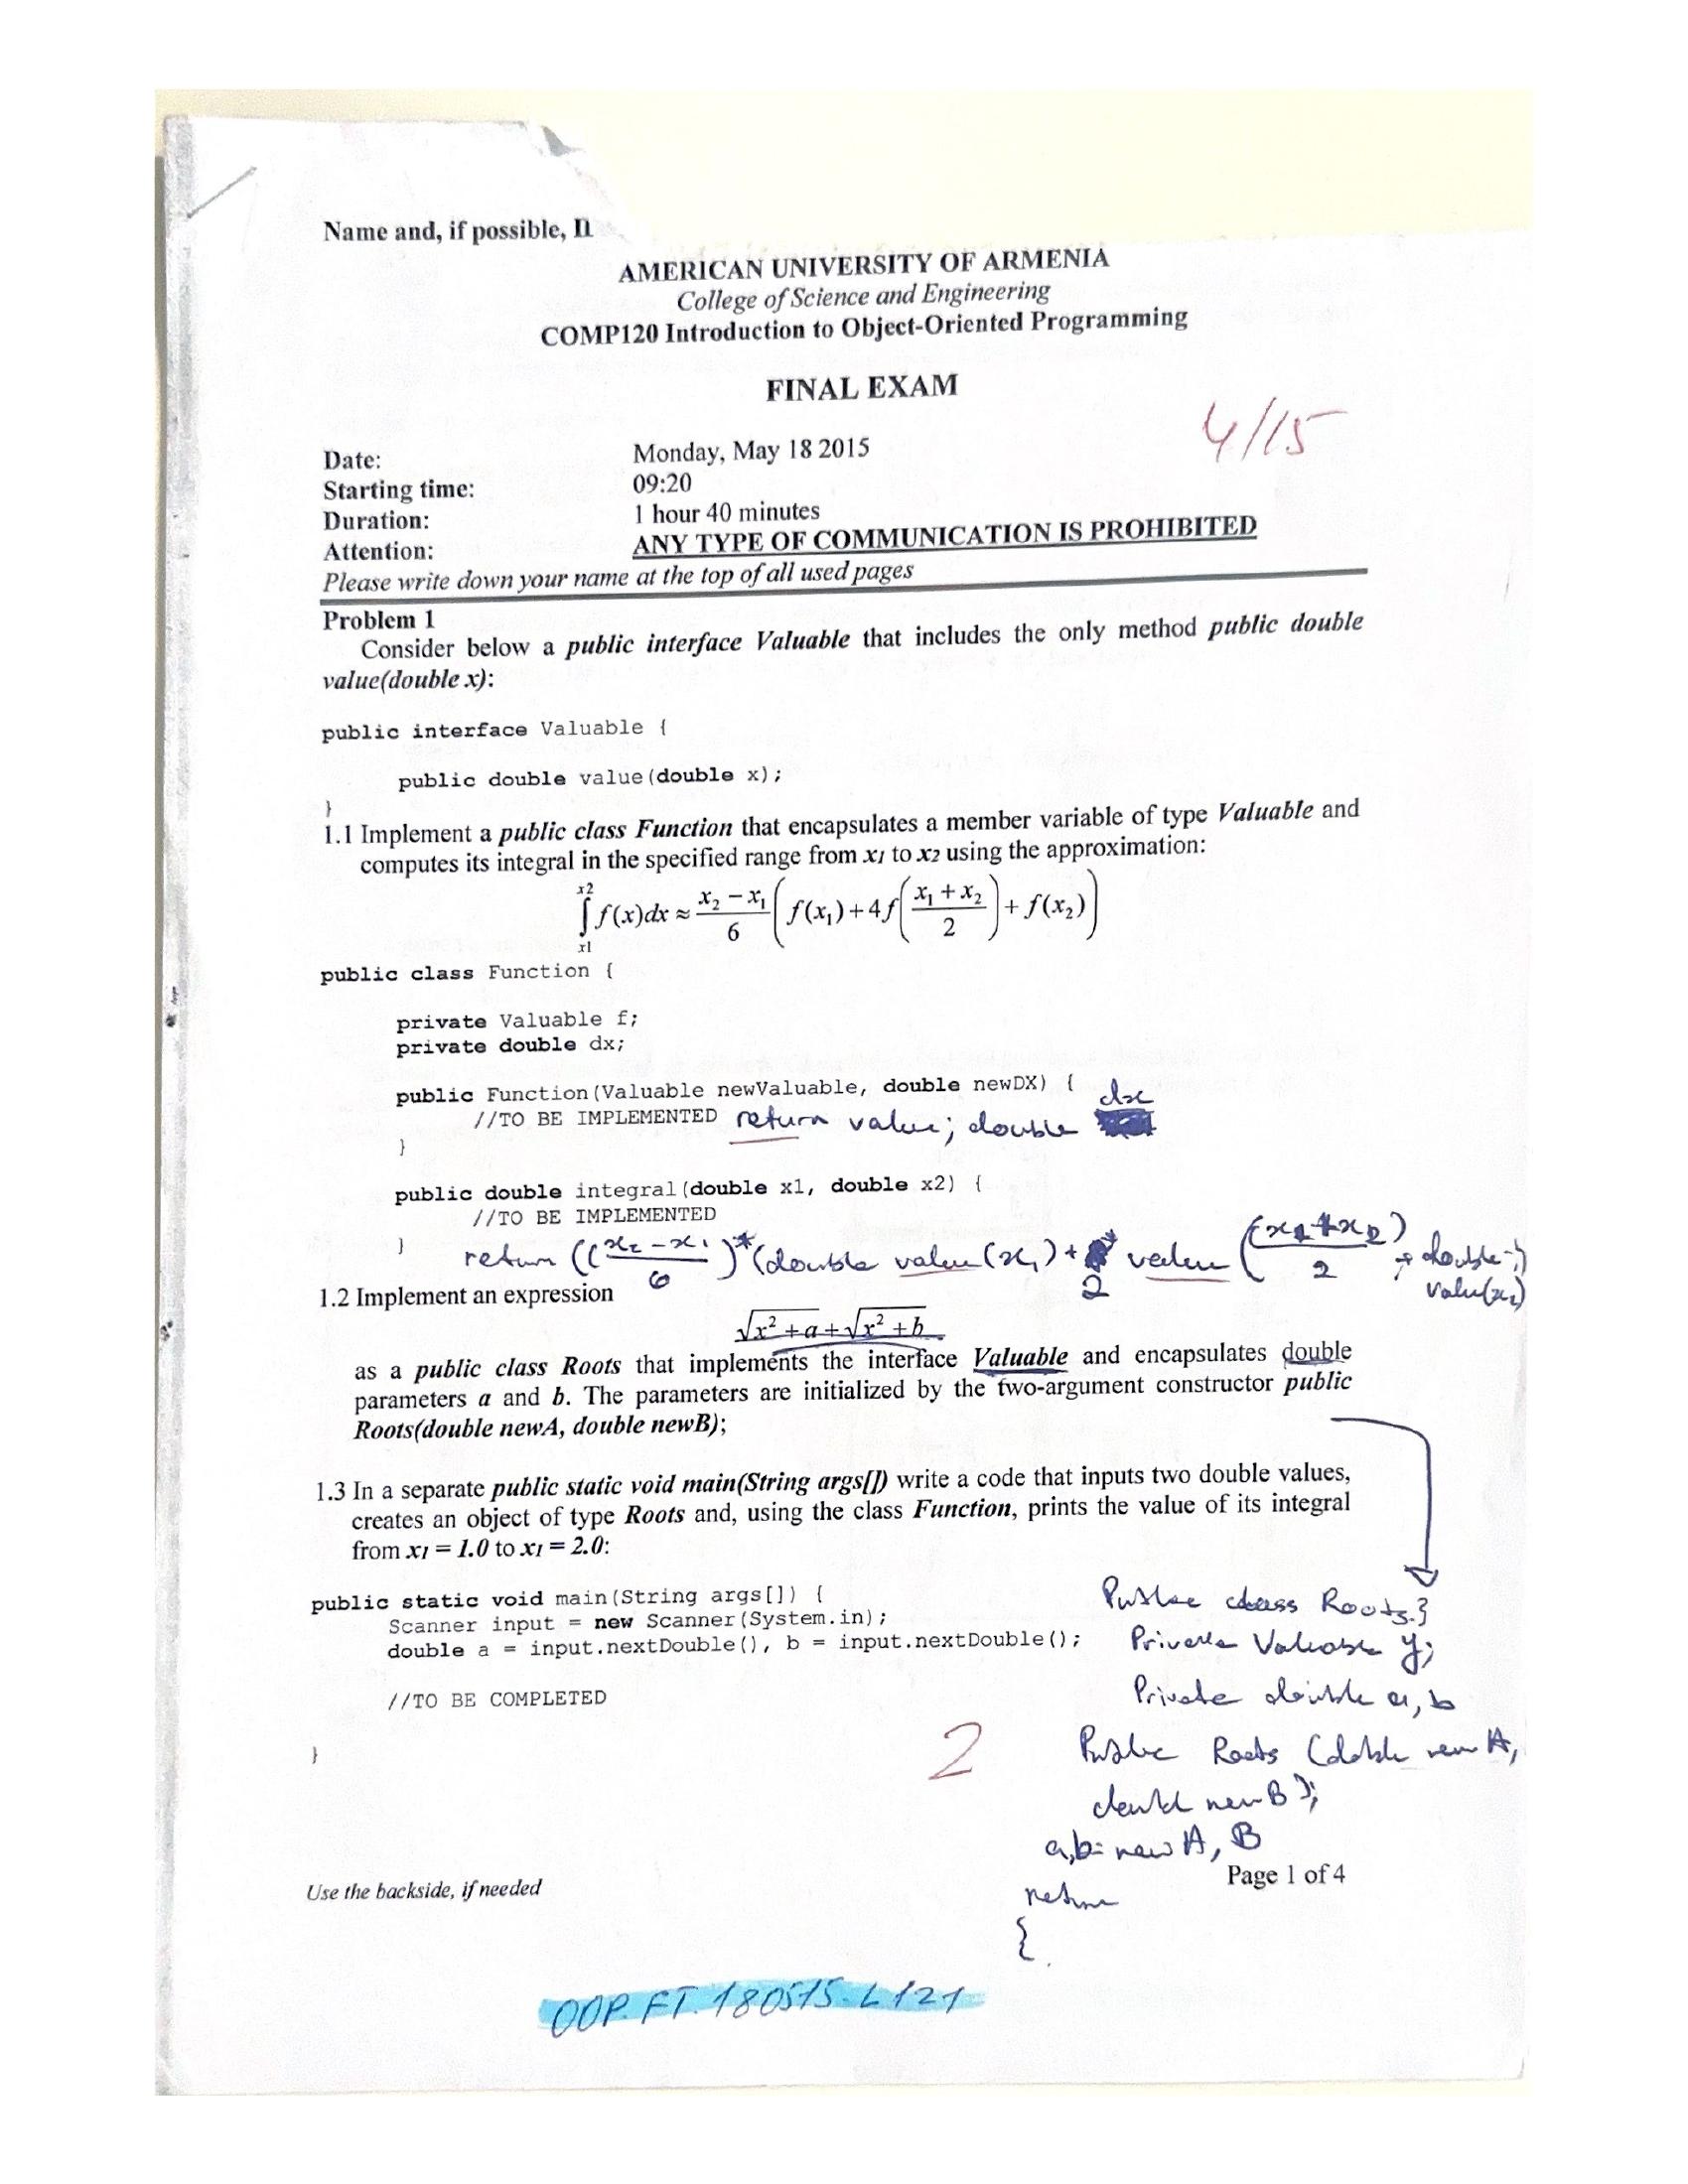 Name and, if possible, I
AMERICAN UNIVERSITY OF ARMENIA
College of Science and Engineering
COMP120 Introduction to Object-Oriented Programming
FINAL EXAM
4/15
Date: Monday, May 18 2015
Starting time: 09:20
Duration: 1 hour 40 minutes
Attention: ANY TYPE OF COMMUNICATION IS PROHIBITED
Please write down your name at the top of all used pages
Problem 1
Consider below a public interface Valuable that includes the only method public double
value(double x):
public interface Valuable {
public double value(double x);
}
1.1 Implement a public class Function that encapsulates a member variable of type Valuable and
computes its integral in the specified range from x1 to x2 using the approximation:
∫x1x2 f(x)dx ≈ (x2 − x1)/6 (f(x1) + 4f((x1 + x2)/2) + f(x2))
public class Function {
private Valuable f;
private double dx;
public Function(Valuable newValuable, double newDX) {
//TO BE IMPLEMENTED return value; double dx
}
public double integral(double x1, double x2) {
//TO BE IMPLEMENTED
}
return ((x2 - x1)/6)*(double value(x1) + 2 value (x1+x2)/2 + double
value(x2)
1.2 Implement an expression
√x² + a + √x² + b
as a public class Roots that implements the interface Valuable and encapsulates double
parameters a and b. The parameters are initialized by the two-argument constructor public
Roots(double newA, double newB);
1.3 In a separate public static void main(String args[]) write a code that inputs two double values,
creates an object of type Roots and, using the class Function, prints the value of its integral
from x1 = 1.0 to x1 = 2.0:
public static void main(String args[]) {
Scanner input = new Scanner(System.in);
double a = input.nextDouble(), b = input.nextDouble();
//TO BE COMPLETED
}
2
Public class Roots }
Private Valuable y;
Private double a, b
Public Roots (double new A,
double new B);
a,b = new A, B
return
{
Use the backside, if needed
Page 1 of 4
OOP.FT.180515.L121